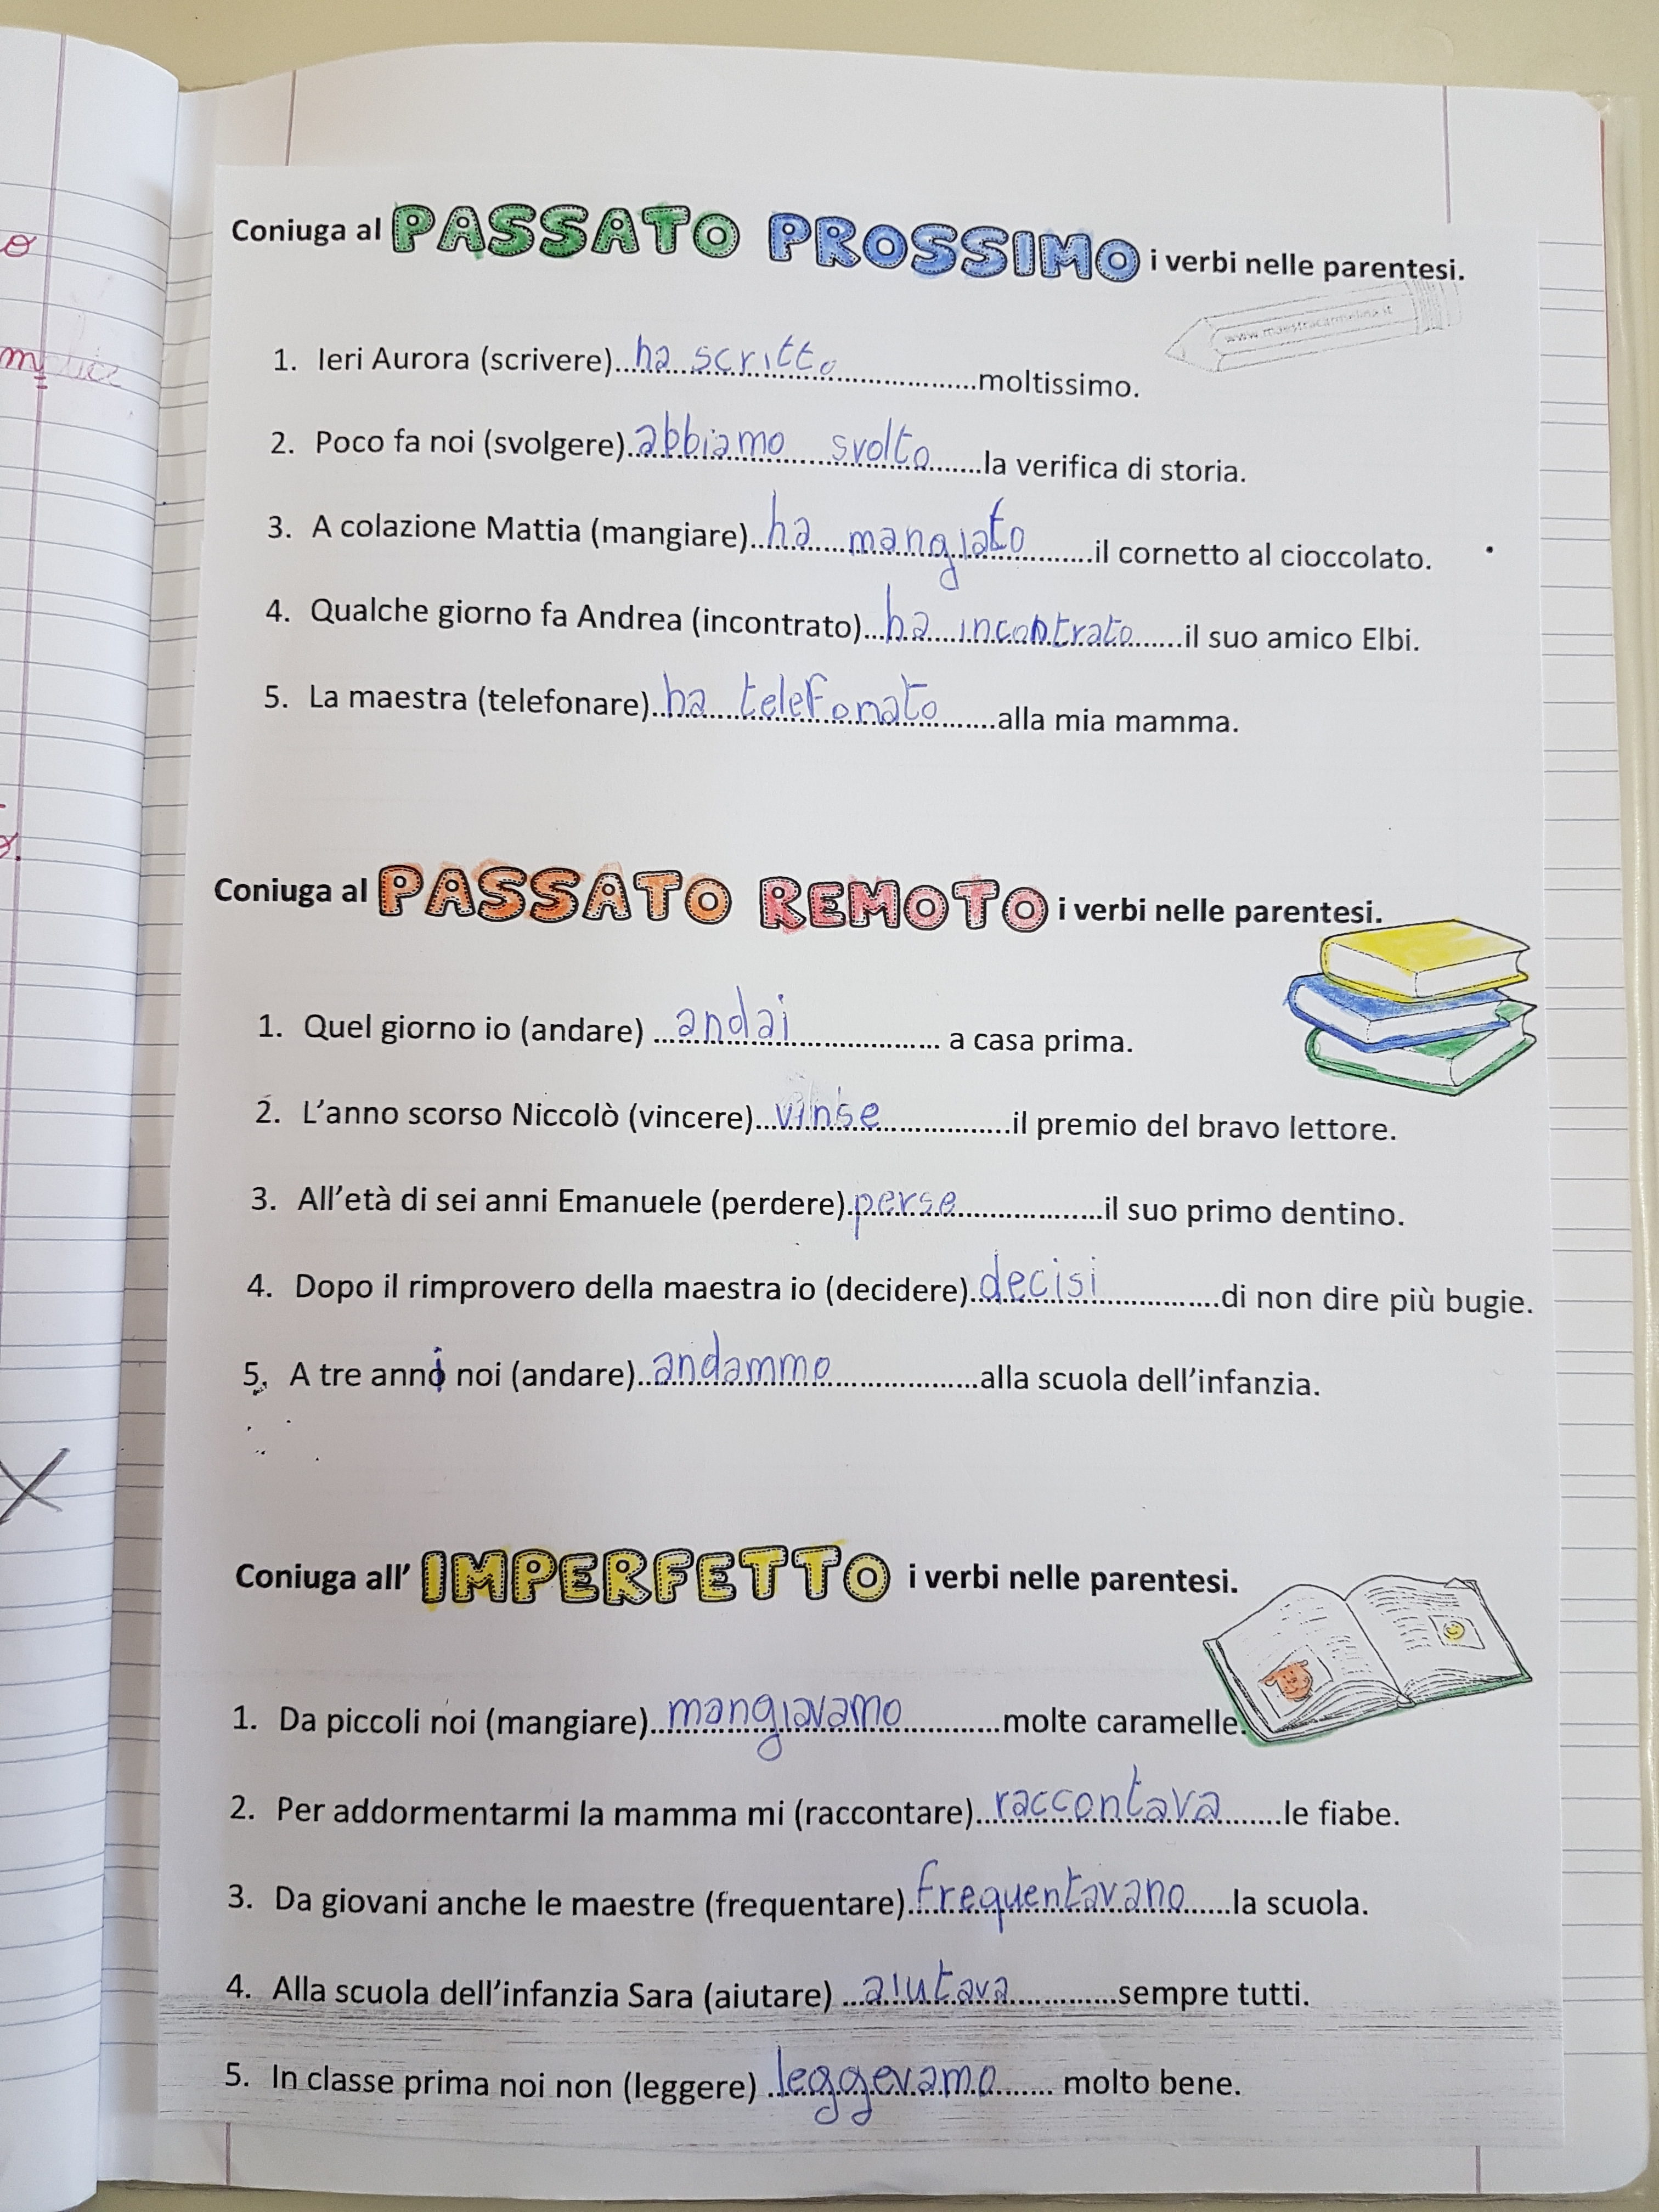 Coniuga al PASSATO PROSSIMO i verbi nelle parentesi.
www.maestracarmelina.it
1. Ieri Aurora (scrivere)...ha scritto...moltissimo.
2. Poco fa noi (svolgere).abbiamo svolto...la verifica di storia.
3. A colazione Mattia (mangiare)...ha mangiato...il cornetto al cioccolato.
4. Qualche giorno fa Andrea (incontrato)...ha incontrato...il suo amico Elbi.
5. La maestra (telefonare)..ha telefonato...alla mia mamma.
Coniuga al PASSATO REMOTO i verbi nelle parentesi.
1. Quel giorno io (andare) ...andai... a casa prima.
2. L'anno scorso Niccolò (vincere)...vinse...il premio del bravo lettore.
3. All'età di sei anni Emanuele (perdere).perse...il suo primo dentino.
4. Dopo il rimprovero della maestra io (decidere).decisi...di non dire più bugie.
5. A tre anni noi (andare)..andammo...alla scuola dell'infanzia.
Coniuga all' IMPERFETTO i verbi nelle parentesi.
1. Da piccoli noi (mangiare)..mangiavamo...molte caramelle.
2. Per addormentarmi la mamma mi (raccontare)...raccontava...le fiabe.
3. Da giovani anche le maestre (frequentare).frequentavano...la scuola.
4. Alla scuola dell'infanzia Sara (aiutare) ...aiutava...sempre tutti.
5. In classe prima noi non (leggere) .leggevamo... molto bene.